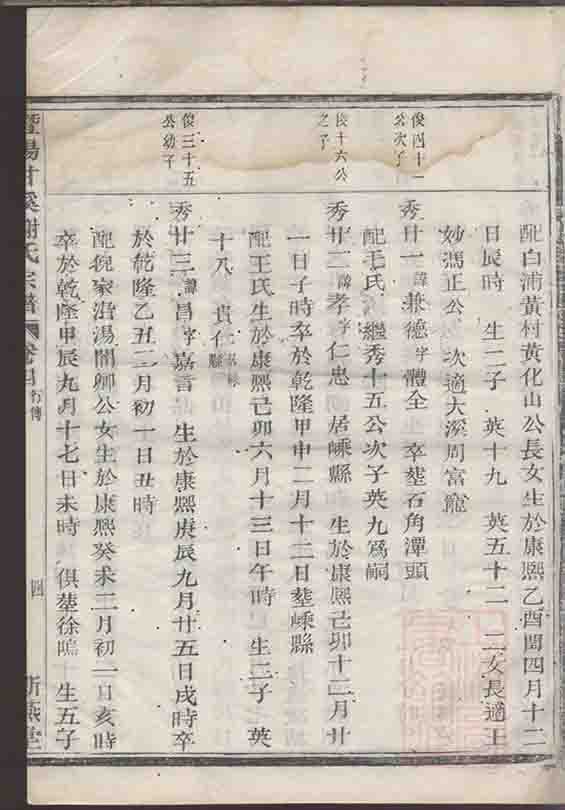 配白浦黃村黃化山公長女生於康熙乙酉閏四月十二
日辰時 生二子 英十九 英五十二 二女長適王
妙 正公 次適大溪周富寵
俊四十一
公次子
秀廿一諱兼德字體全 卒塟石角潭頭
配毛氏 繼秀十五公次子英九爲嗣
俊十六公
之子
秀廿二諱孝字仁忠 居嵊縣 生於康熙己卯十二月廿
一日子時卒於乾隆甲申二月十二日塟嵊縣
配王氏生於康熙己卯六月十三日午時 生二子 英
十八 貴仁 縣
俊三十五
公幼子
秀廿三諱昌字嘉言 生於康熙庚辰九月廿五日戌時卒
於乾隆乙丑二月初一日丑時
配倪家 湯聞卿公女生於康熙癸未二月初一日亥時
卒於乾隆甲辰九月十七日未時 俱塟徐塢 生五子
暨陽甘溪謝氏宗譜 卷四 行傳 四